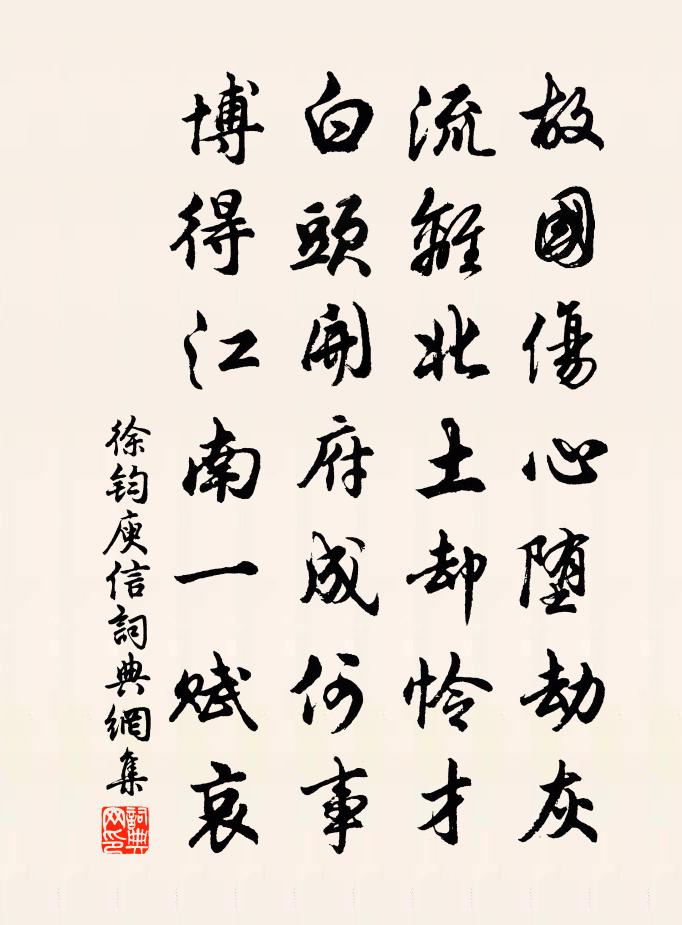 故國傷心堕劫灰
流離北土却怜才
白頭開府成何事
博得江南一赋哀
徐钧庾信詞典網集
詞典网印